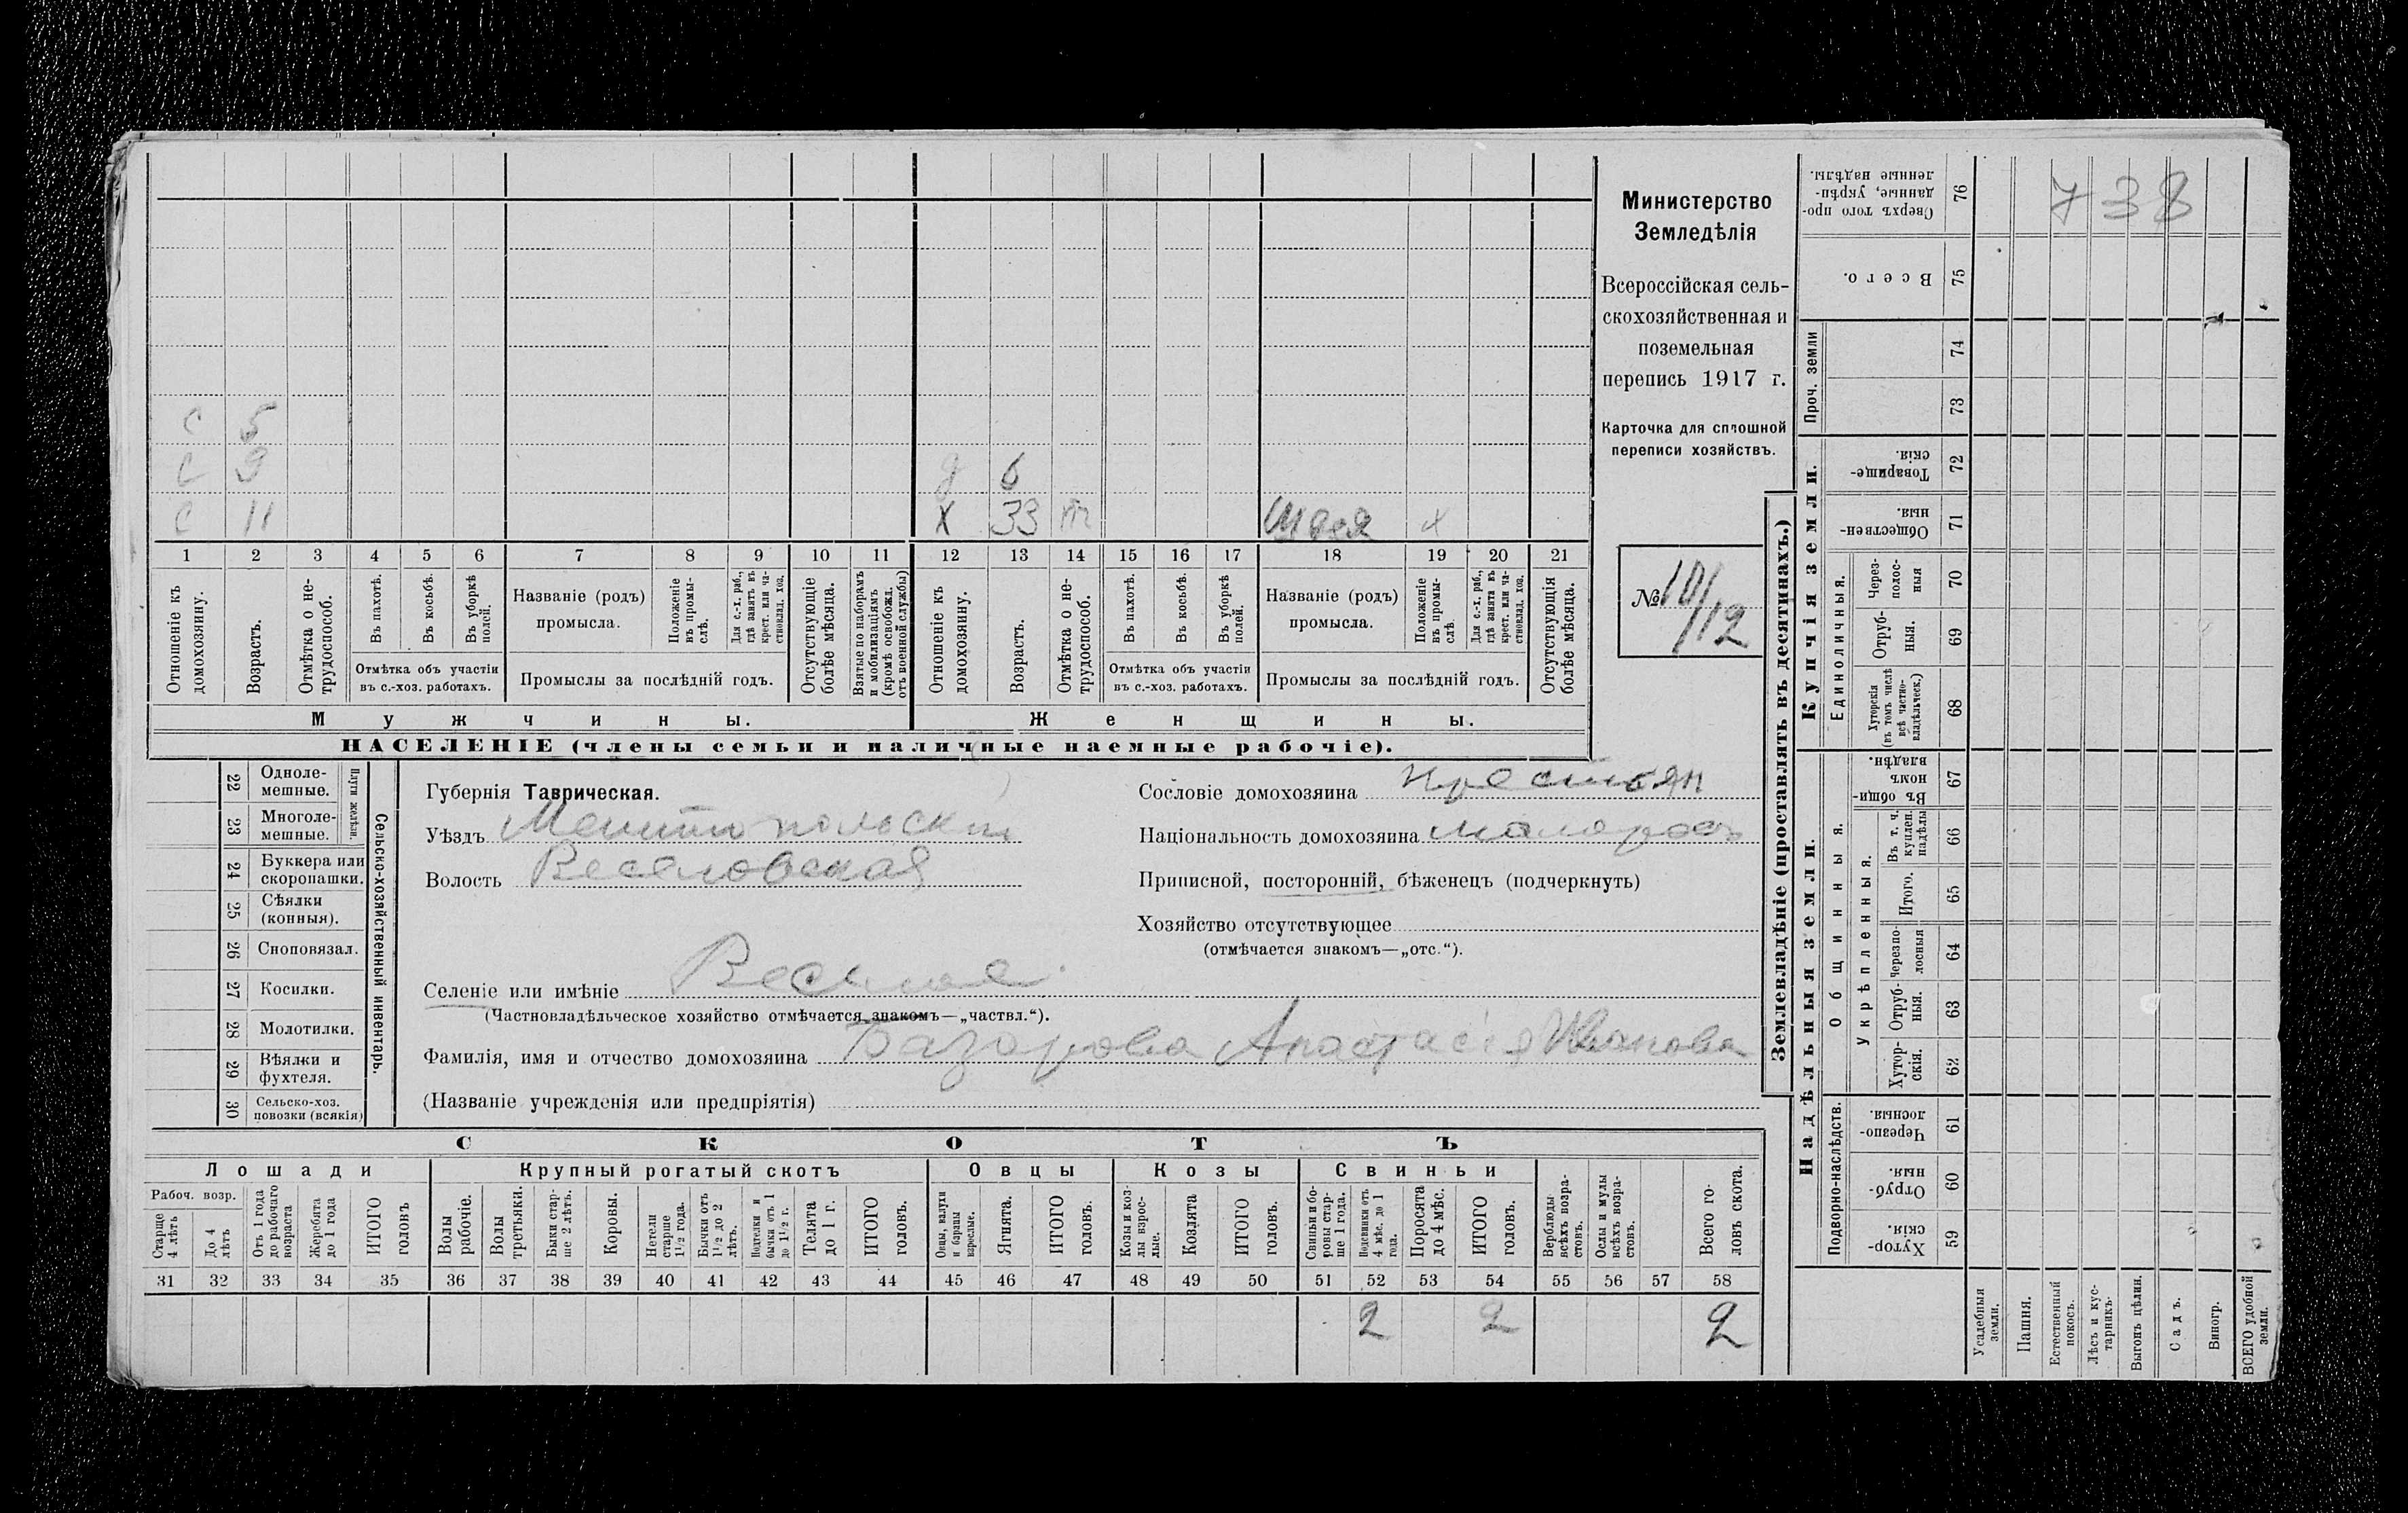 Министерство
Земледѣлія
Всероссійская сель-
скохозяйственная и
поземельная
перепись 1917 г.
Карточка для сплошной
переписи хозяйствъ.
№ 101/112
738
С 5
С 9
С 11
д 6
Х 33
швея х
1 2 3 4 5 6 7 8 9 10 11 12 13 14 15 16 17 18 19 20 21
Отношеніе къ домохозяину.
Возрастъ.
Отмѣтка о не-трудоспособ.
Въ пахотѣ.
Въ косьбѣ.
Въ уборкѣ полей.
Отмѣтка объ участіи
въ с.-хоз. работахъ.
Названіе (родъ)
промысла.
Положеніе въ промы-слѣ.
Для с.-х. раб., гдѣ занятъ въ крест. или ча-стновлад. хоз.
Промыслы за послѣдній годъ.
Отсутствующіе болѣе мѣсяца.
Взятые по наборамъ и мобилизаціямъ (кромѣ освобожд. отъ военной службы)
Отношеніе къ домохозяину.
Возрастъ.
Отмѣтка о не-трудоспособ.
Въ пахотѣ.
Въ косьбѣ.
Въ уборкѣ полей.
Отмѣтка объ участіи
въ с.-хоз. работахъ.
Названіе (родъ)
промысла.
Положеніе въ промы-слѣ.
Для с.-х. раб., гдѣ занята въ крест. или ча-стновлад. хоз.
Промыслы за послѣдній годъ.
Отсутствующія болѣе мѣсяца.
Мужчины.
Женщины.
НАСЕЛЕНІЕ (члены семьи и наличные наемные рабочіе).
22 Одноле-мешные.
23 Многоле-мешные.
Плуги желѣзн.
24 Буккера или скоропашки.
25 Сѣялки (конныя).
26 Сноповязал.
27 Косилки.
28 Молотилки.
29 Вѣялки и фухтеля.
30 Сельско-хоз. повозки (всякія)
Сельско-хозяйственный инвентарь.
Губернія Таврическая.
Уѣздъ Мелитопольскій
Волость Веселовская
Сословіе домохозяина крестьян
Національность домохозяина малоросъ
Приписной, посторонній, бѣженецъ (подчеркнуть)
Хозяйство отсутствующее
(отмѣчается знакомъ—„отс.“).
Селеніе или имѣніе Веселое
(Частновладѣльческое хозяйство отмѣчается знакомъ—„частвл.“).
Фамилія, имя и отчество домохозяина Базарова Анастасія Иванова
(Названіе учрежденія или предпріятія)
СКОТЪ
Лошади
Крупный рогатый скотъ
Овцы
Козы
Свиньи
Рабоч. возр.
Старше 4 лѣтъ
До 4 лѣтъ
Отъ 1 года до рабочаго возраста
Жеребята до 1 года
ИТОГО головъ
Волы рабочіе.
Волы третьяки.
Быки стар-ше 2 лѣтъ.
Коровы.
Нетели старше 1½ года.
Бычки отъ 1½ до 2 лѣтъ.
Подтелки и бычки отъ 1 до 1½ г.
Телята до 1 г.
ИТОГО головъ.
Овцы, валухи и бараны взрослые.
Ягнята.
ИТОГО головъ.
Козы и коз-лы взрос-лые.
Козлята
ИТОГО головъ.
Свиньи и бо-ровы стар-ше 1 года.
Подсвинки отъ 4 мѣс. до 1 года.
Поросята до 4 мѣс.
ИТОГО головъ.
Верблюды всѣхъ возра-стовъ.
Ослы и мулы всѣхъ возра-стовъ.
Всего го-ловъ скота.
31 32 33 34 35 36 37 38 39 40 41 42 43 44 45 46 47 48 49 50 51 52 53 54 55 56 57 58
2 2 2
Землевладѣніе (проставлять въ десятинахъ.)
Сверхъ того про-данные, укрѣп-ленные надѣлы. 76
Всего. 75
Проч. земли
74
73
Купчія земли.
Товарище-скія. 72
Обществен-ныя. 71
Единоличныя.
Через-полос-ныя 70
Отруб-ныя. 69
Хуторскія (въ томъ числѣ всѣ частно-владѣльческ.) 68
Надѣльныя земли.
Общинныя.
Въ общин-номъ владѣн. 67
Укрѣпленныя.
Въ т. ч. куплен. надѣлы 66
Итого. 65
Черезпо-лосныя 64
Отруб-ныя. 63
Хутор-скія. 62
Подворно-наслѣдств.
Черезпо-лосныя. 61
Отруб-ныя. 60
Хутор-скія. 59
Усадебныя земли.
Пашня.
Естественный покосъ.
Лѣсъ и кус-тарникъ.
Выгонъ цѣлин.
Садъ.
Виногр.
ВСЕГО удобной земли.